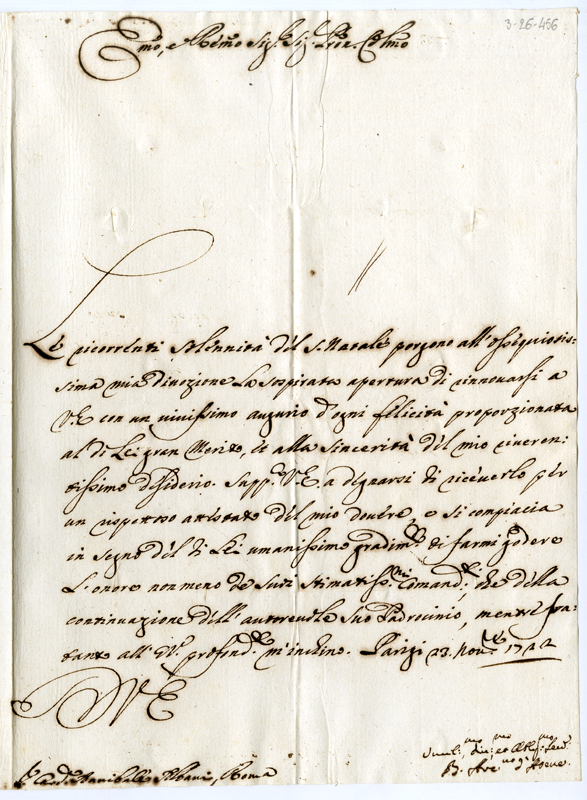 3-26-456
Emo, e Rmo Sig.r Sig.r Pron. Colmo
Le ricorrenti Solennità del S. Natale porgono all'ossequiosis:
sima mia divozione La sospirata apertura di rinnovarsi a
V.E con un vivissimo augurio d'ogni felicità proporzionata
al di Lei gran Merito, e alla sincerità del mio riveren:
tissimo desiderio. Supp.co V.E. a degnarsi di riceverlo per
un rispettoso attestato del mio dovere, e si compiacia
in segno del di Lei umanissimo gradim.to di farmi godere
L'onore non meno de Suoi stimatiss.mi Comand.ti, che della
continuazione dell'autorevole Suo Padrocinio, mentre fra:
tanto all' E.V. profond.te m'inchino. Parigi 23. Nov.bre 1722
D V E
Sr Card. Annibale Albani, Roma
Umil.mo div.mo et Obl.mo Ser.
B.